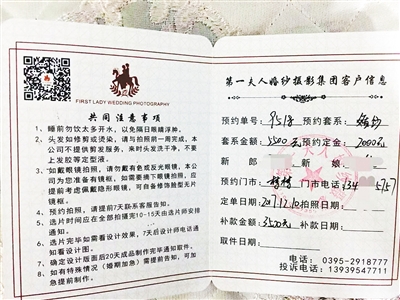 FIRST LADY WEDDING PHOTOGRAPHY
共同注意事项
1、睡前勿饮太多开水，以免隔日眼睛浮肿。
2、头发如修剪或烫染，请与拍照前一周完成，本
公司不提供剪发服务，来时头发洗干净，不要
上发胶等定型液。
3、如戴眼镜拍照，请勿戴有色或反光眼镜，本公
司为您准备有镜框，如需要摘下眼镜拍照，应
提前考虑佩戴隐形眼镜，可自备修饰脸型无片
镜框。
4、预约拍照，请提前7天联系客服告知。
5、选片时间应在全部拍摄完10-15天由选片师安排
通知。
6、选片完毕如需看设计效果，7天后设计师电话通
知看设计图。
7、确定设计版面后20天成品制作完毕通知取件。
8、如有特殊情况（婚期加急）需提前告知，可加
急提前制作。
第一夫人婚纱摄影集团客户信息
预约单号：9518 预约套系：婚纱
套系金额：5500元 预约定金：2000元
新郎 新娘
预约门市： 门市电话：134 57
定单日期：2017.12.10 拍照日期：
补款金额：3500元 补款日期：
取件日期：
电话：0395-2918777
投诉电话：13939547711